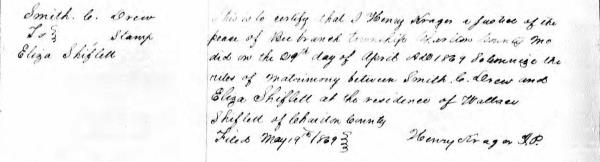 Smith. C. Drew
To Stamp
Eliza Shiflett
This is to certify that I Henry Krager a Justice of the
peace of Bee branch township Chariton County Mo
did on the 29th day of April AD 1869 Solemnize the
rites of Matrimony between Smith. C. Drew and
Eliza Shiflett at the residence of Wallace
Shiflett of Chariton County
Filed May 19th 1869 Henry Krager J.P.